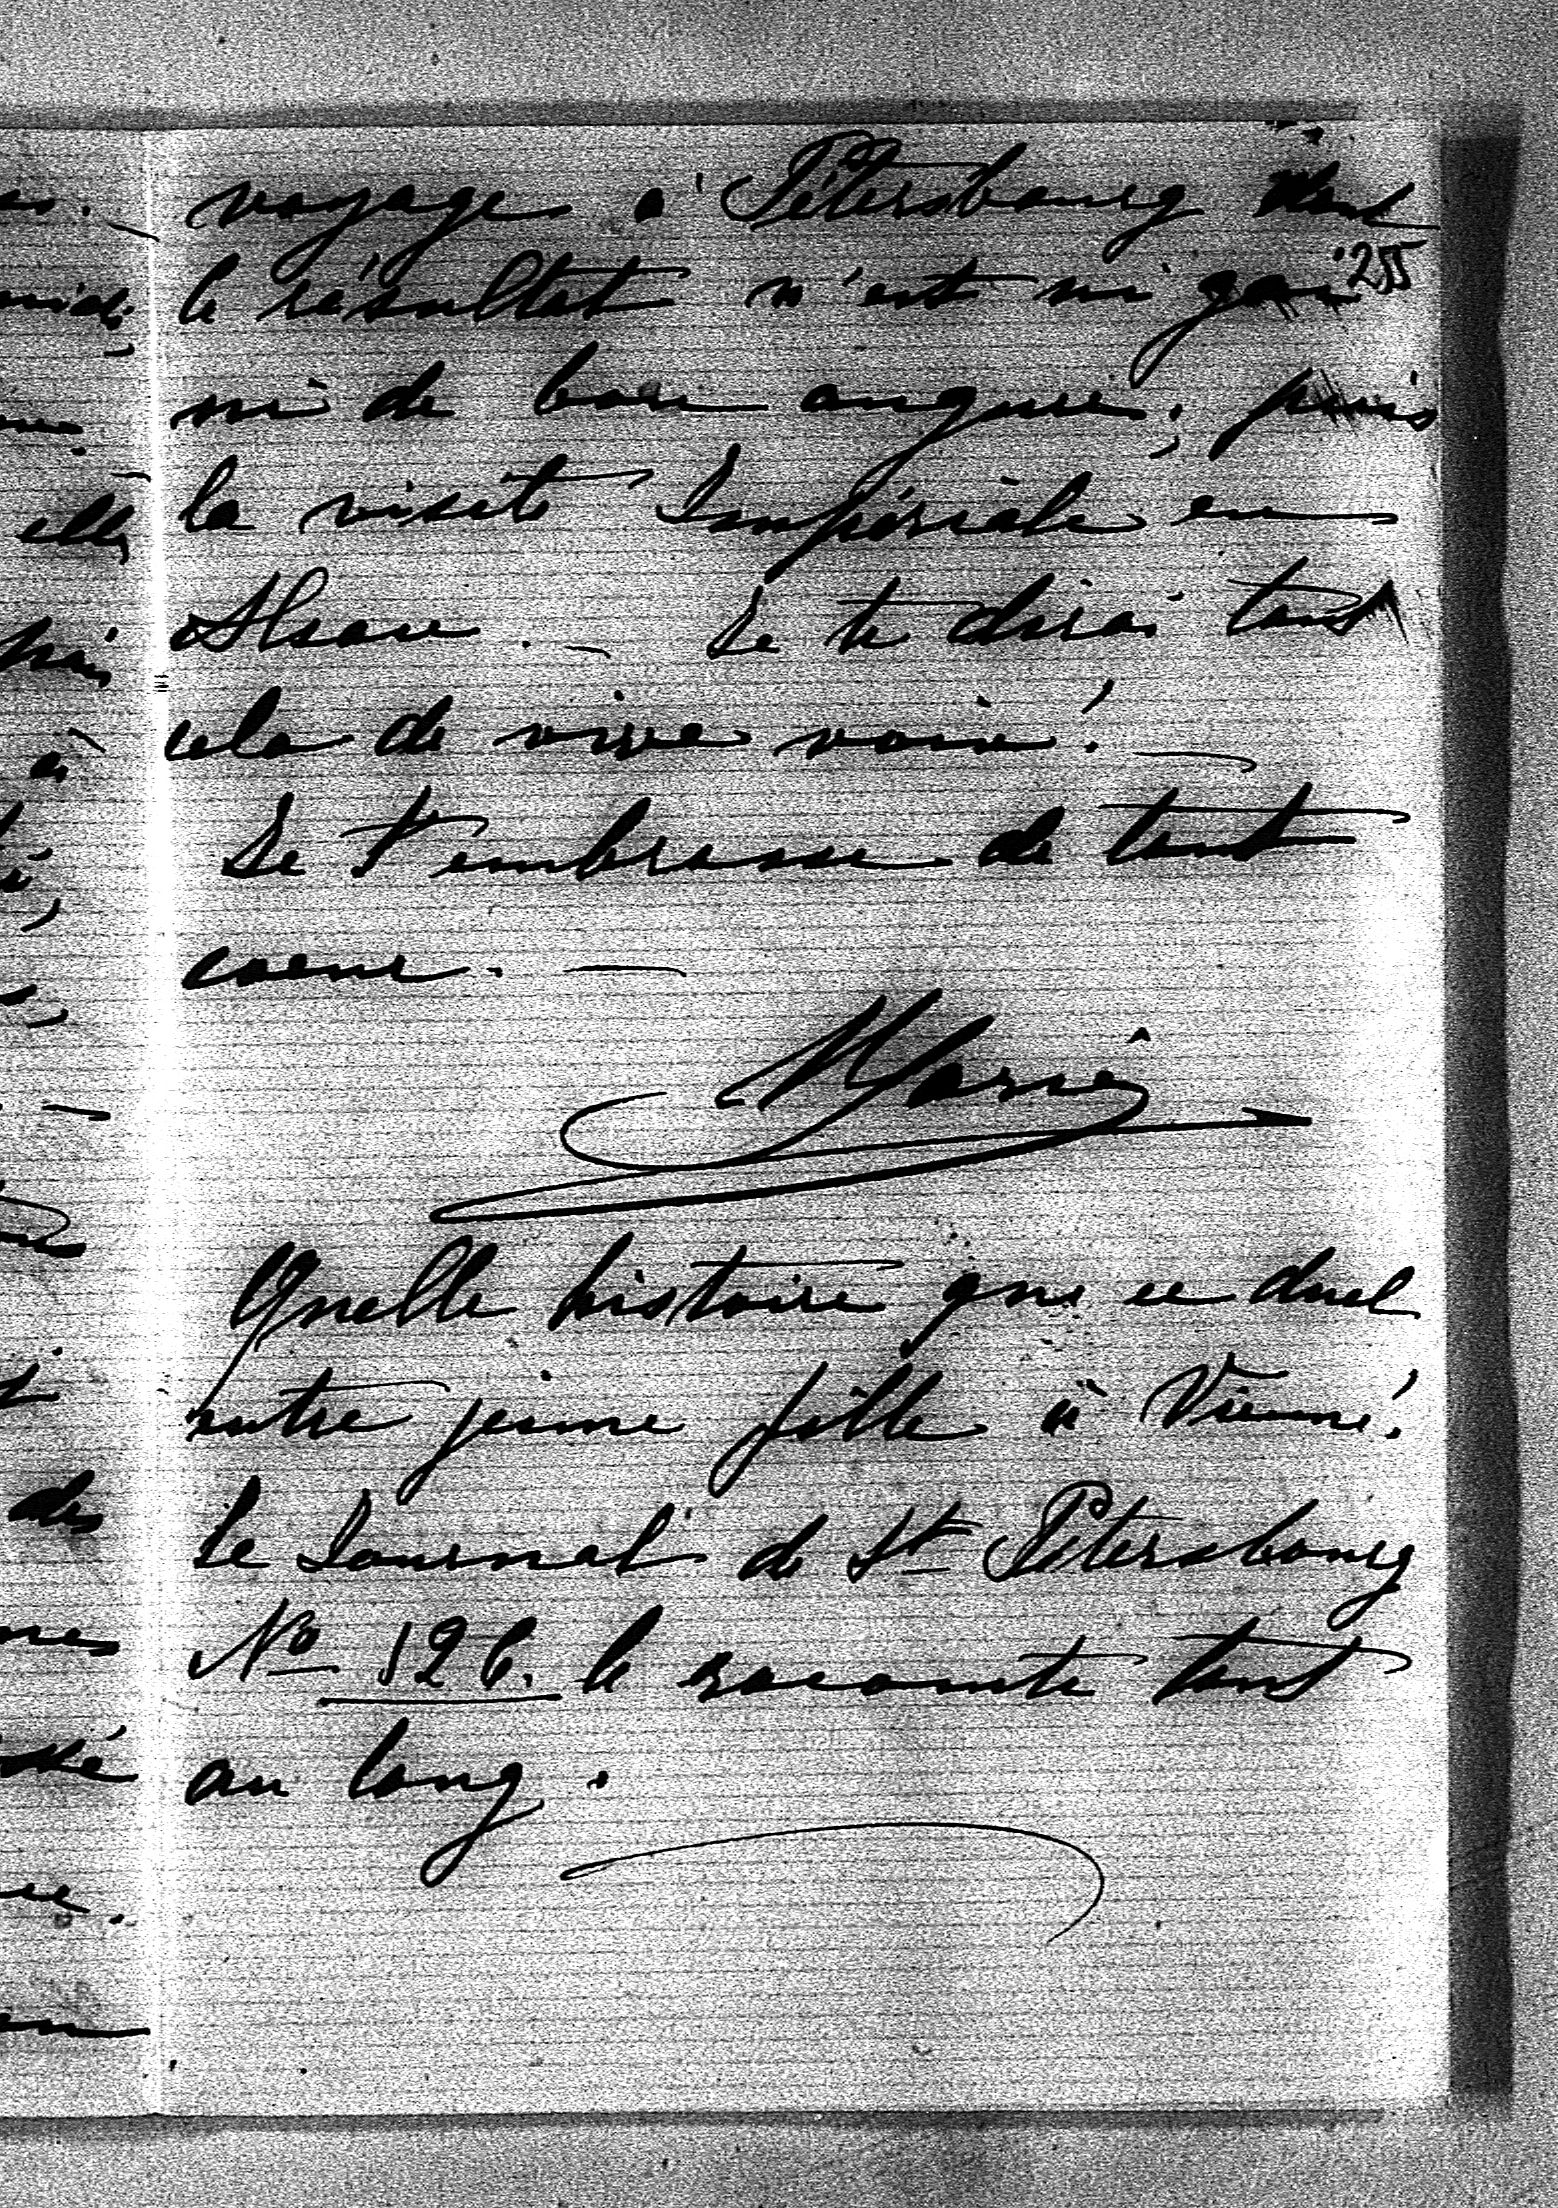 voyage à Pétersbourg dont
255
le résultat n'est ni gai
ni de bon augure; puis
la visite Impériale en
Alsace. — Je te dirai tout
cela de vive voix! —
Je t'embrasse de tout
coeur. —
Marie
Quelle histoire que ce duel
entre jeune fille à Vienne!
Le Journal de St Pétersbourg
No 126. le raconte tout
au long.
elle
à
des